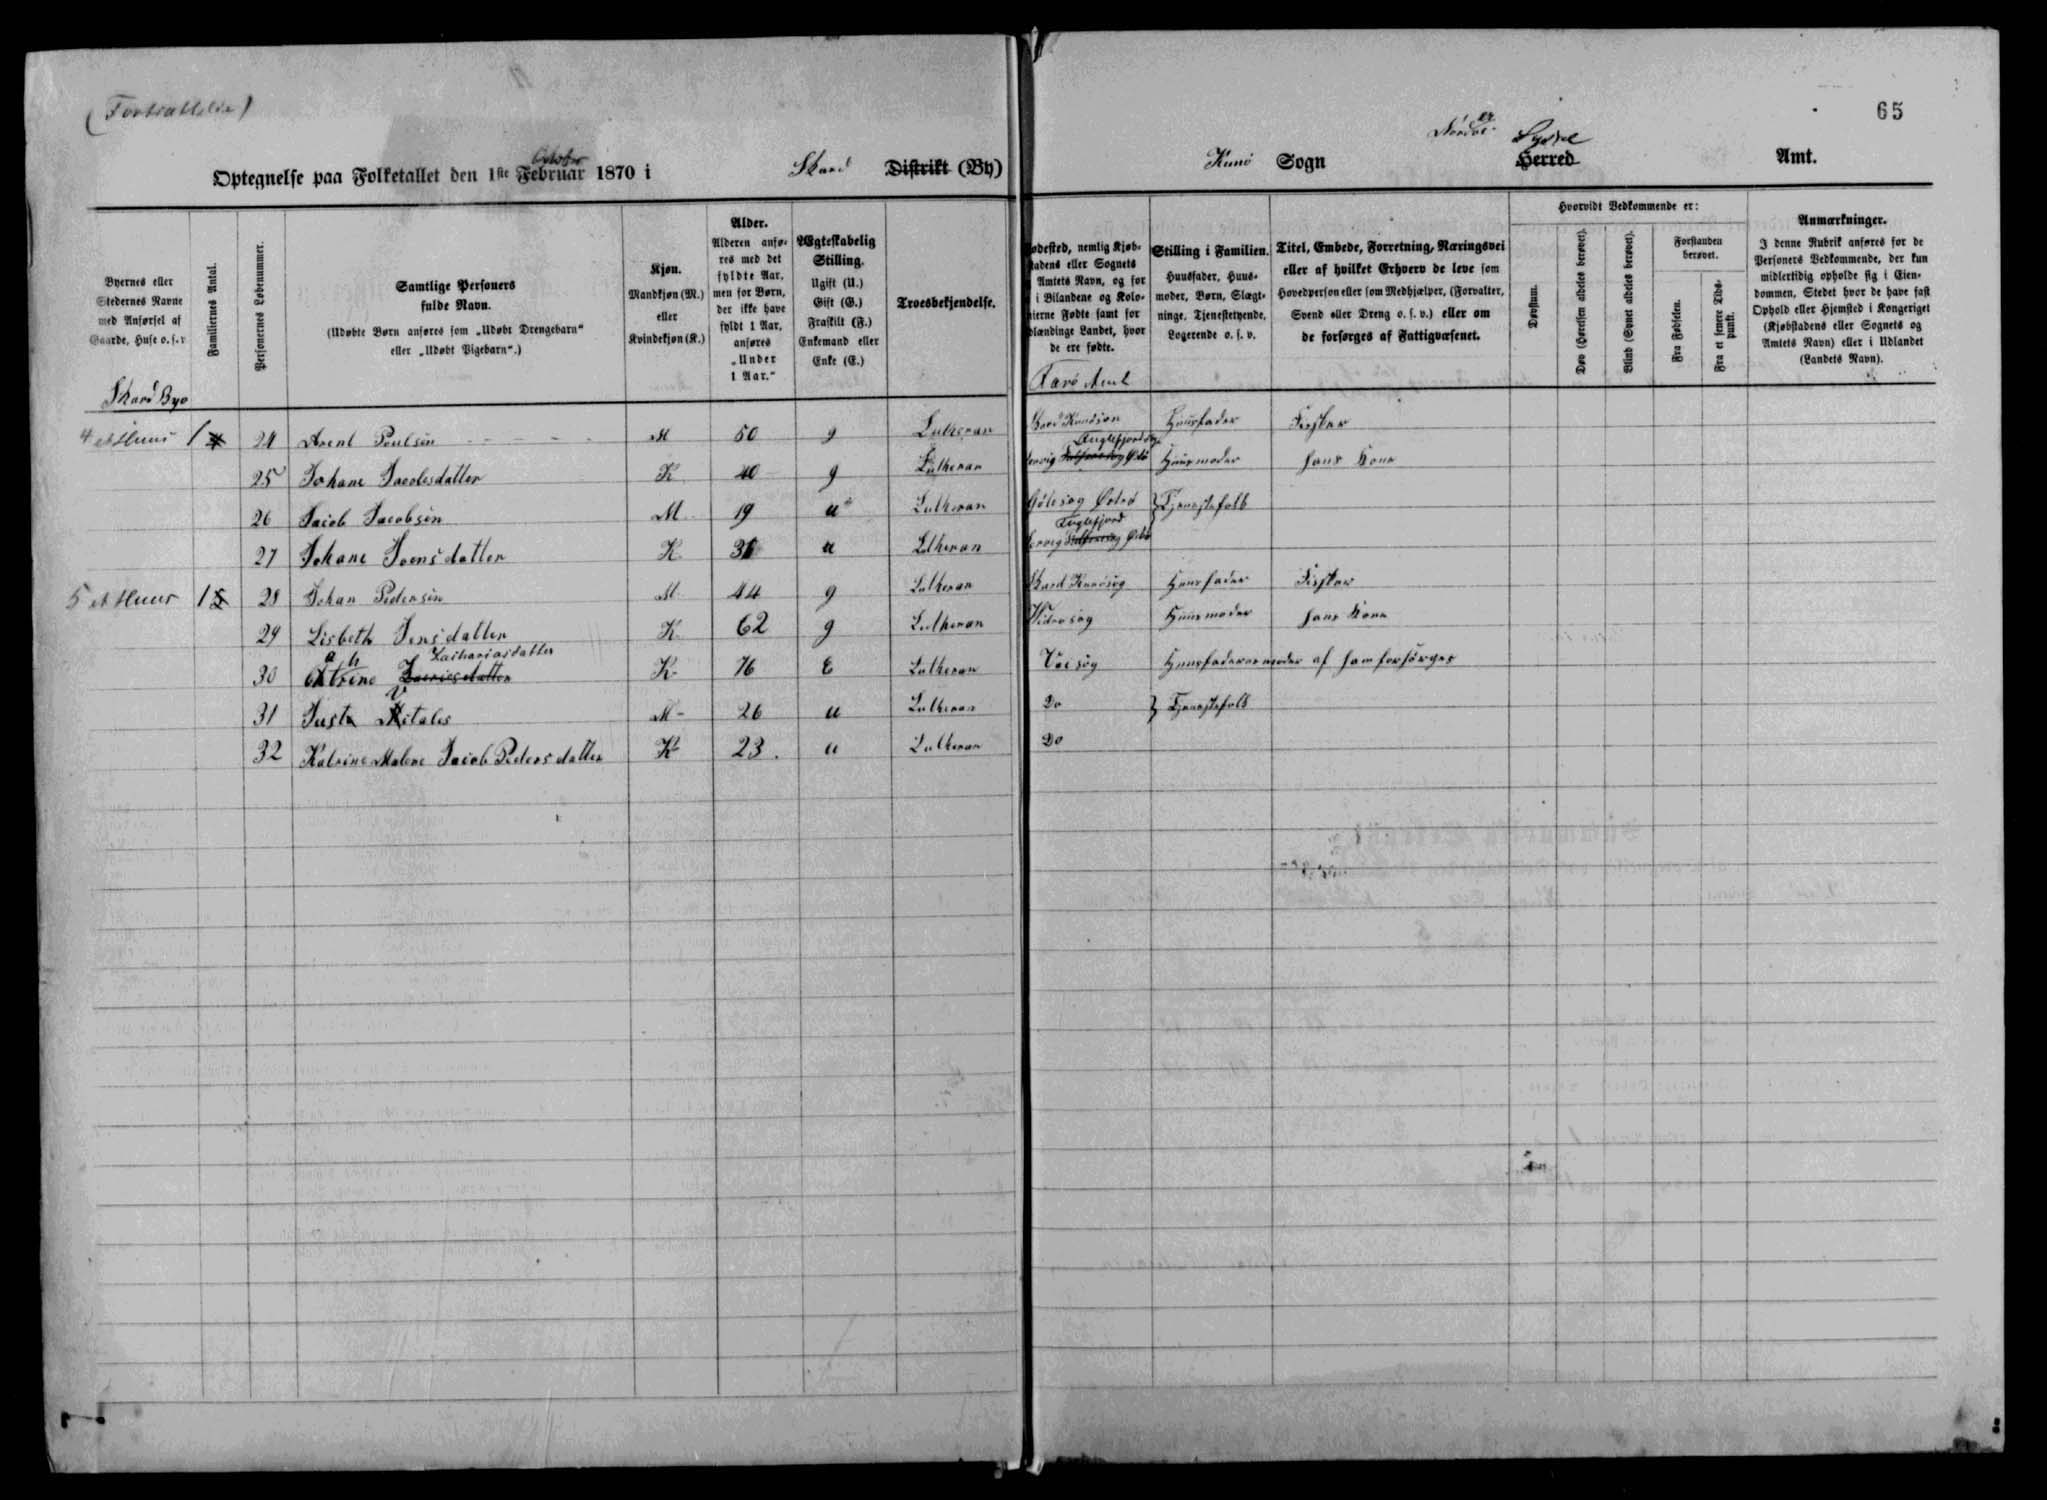 (Fortsættelse)
65
Norder Syssel
Optegnelse paa Folketallet den 1ste Februar October 1870 i Skard Distrikt (By)
Kunø Sogn Herred Amt.
Byernes eller Stedernes Navne med Anførsel af Gaarde, Huse o. s. v
Familiernes Antal.
Personernes Løbenummer.
Samtlige Personers fulde Navn.
(Udøbte Børn anføres som „Udøbt Drengebarn“ eller „Udøbt Pigebarn“.)
Kjøn. Mandkjøn (M.) eller Kvindekjøn (K.)
Alder. Alderen anføres med det fyldte Aar, men for Børn, der ikke have fyldt 1 Aar, anføres „Under 1 Aar.“
Ægteskabelig Stilling. Ugift (U.) Gift (G.) Fraskilt (F.) Enkemand eller Enke (E.)
Troesbekjendelse.
Fødested, nemlig Kjøbstadens eller Sognets og Amtets Navn, og for i Bilandene og Kolonierne Fødte samt for Udlændinge Landet, hvor de ere fødte.
Stilling i Familien. Huusfader, Huusmoder, Børn, Slægtninge, Tjenestetyende, Logerende o. s. v.
Titel, Embede, Forretning, Næringsvei eller af hvilket Erhverv de leve som Hovedperson eller som Medhjælper, (Forvalter, Svend eller Dreng o. s. v.) eller om de forsørges af Fattigvæsenet.
Hvorvidt Vedkommende er:
Døvstum.
Døv (Hørelsen aldeles berøvet).
Blind (Synet aldeles berøvet).
Forstanden berøvet.
Fra Fødselen.
Fra et senere Tidspunkt.
Anmærkninger.
I denne Rubrik anføres for de Personers Vedkommende, der kun midlertidig opholde sig i Eiendommen, Stedet hvor de have fast Ophold eller Hjemsted i Kongeriget (Kjøbstadens eller Sognets og Amtets Navn) eller i Udlandet (Landets Navn).
Skard Byo
Farø Amt
4 et Huus 1 4 24 Arent Poulsen M 50 g Lutheran Skard Kunosøn Huusfader Fisker
25 Johane Jacobsdatter K 40 g Lutheran Fuglefjord Østrø Huusmoder hans Kone
26 Jacob Jacobsen M 19 u Lutheran Gótesog Østrø } Tjenestefolk
27 Johane Joensdatter K 31 u Lutheran Fuglefjord Østrø
5 et Huus 1 5 28 Johan Pedersen M 44 g Lutheran Skard Kunøsog Huusfader Fisker
29 Lisbeth Jensdatter K 62 g Lutheran Widrosog Huusmoder hans Kone
30 Cathrine Zacrisdatter Zachariasdatter K 76 E Lutheran Vaesog Huusfaderenmoder af ham forsörges
31 Just Vitalis M 26 u Lutheran Do } Tjenestefolk
32 Katrine Malene Jacob Pedersdatter K 23. u Lutheran Do